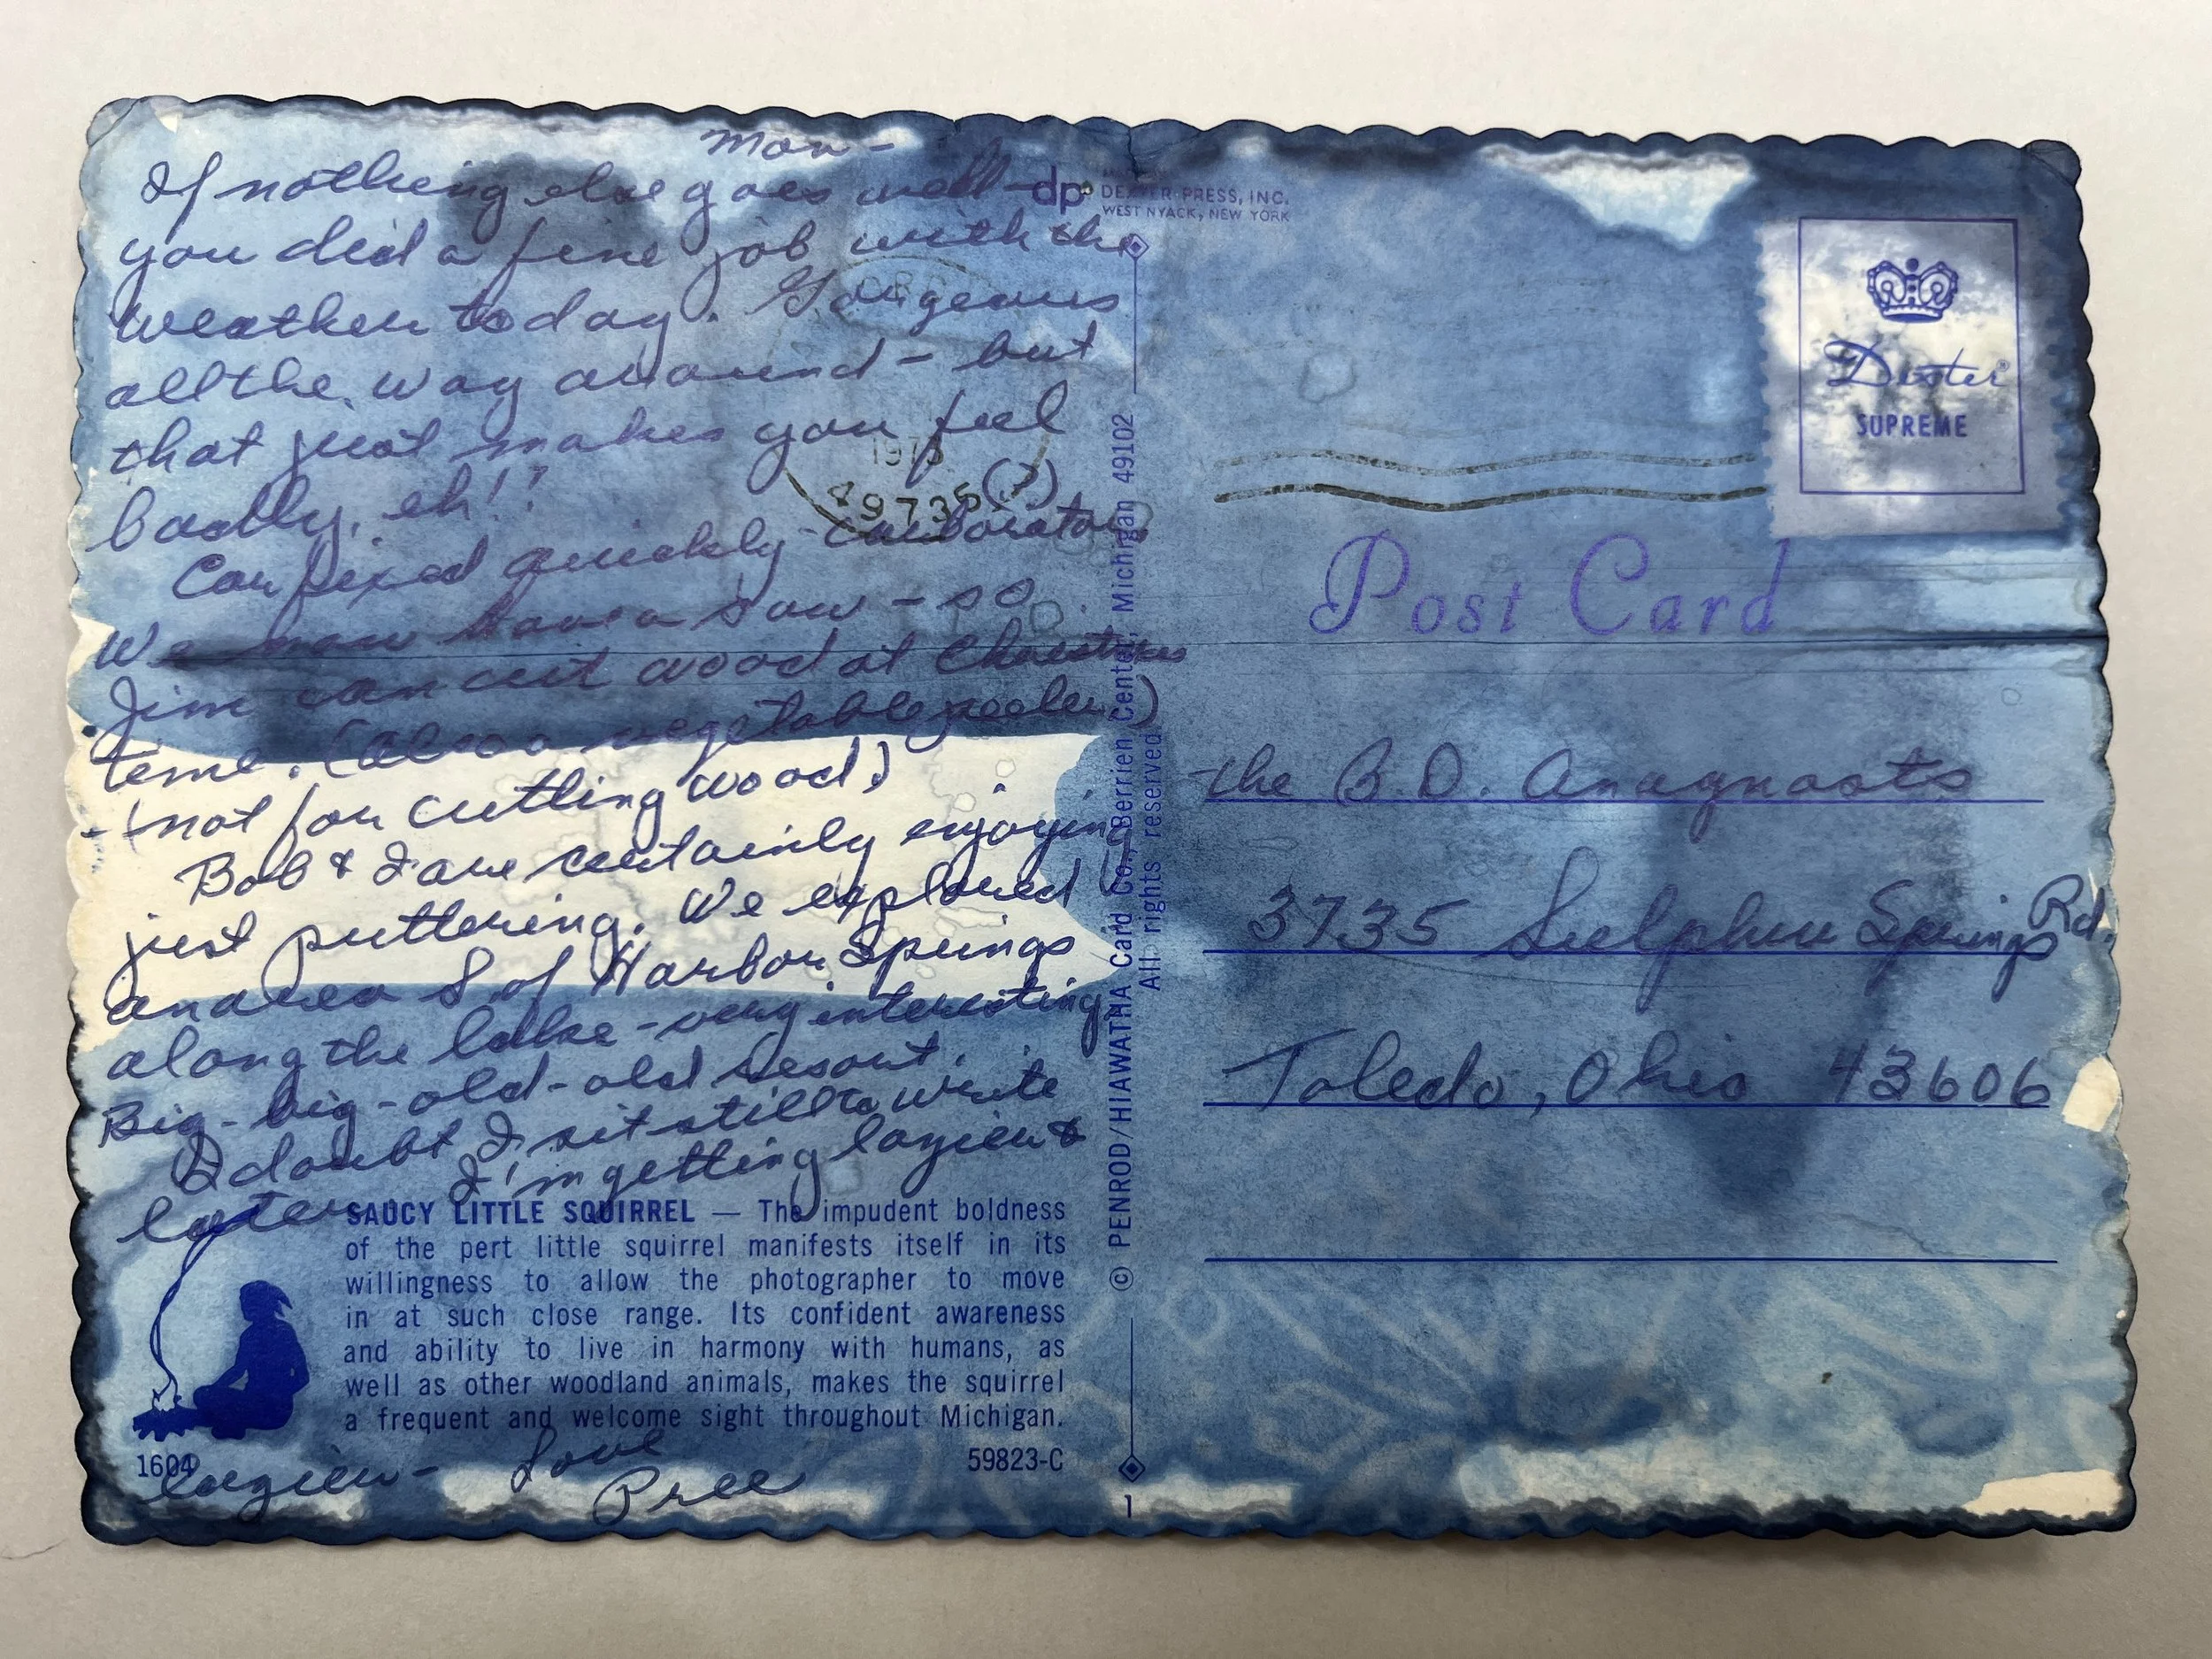 Mon-
If nothing else goes well-
you did a fine job with the
weather today. Gorgeous
all the way around - but
that just makes you feel
badly, eh!! (?)
Car fixed quickly - carborator
We now have a saw - so
Jim can cut wood at Christmas
time. (also a vegetable peeler)
- (not for cutting wood)
Bob & I are certainly enjoying
just puttering. We explored
an area S. of Harbor Springs
along the lake - very interesting.
Big - big - old - old resort.
I doubt I sit still to write
later I'm getting lazier &
lazier - Love
Pree
SAUCY LITTLE SQUIRREL — The impudent boldness
of the pert little squirrel manifests itself in its
willingness to allow the photographer to move
in at such close range. Its confident awareness
and ability to live in harmony with humans, as
well as other woodland animals, makes the squirrel
a frequent and welcome sight throughout Michigan.
1604
59823-C
dp
DEXTER PRESS, INC.
WEST NYACK, NEW YORK
49735
© PENROD/HIAWATHA Card Co., Berrien Center, Michigan 49102
All rights reserved
1
Dexter®
SUPREME
Post Card
The B.D. Anagnosts
3735 Sulphur Springs Rd.
Toledo, Ohio 43606